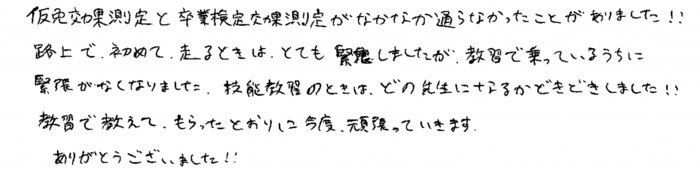 仮免効果測定と卒業検定効果測定がなかなか通らなかったことがありました!!
路上で、初めて、走るときは、とても緊張しましたが、教習で乗っているうちに
緊張がなくなりました。技能教習のときは、どの先生になるかどきどきしました!!
教習で教えて、もらったとおりに今度、頑張っていきます。
ありがとうございました!!